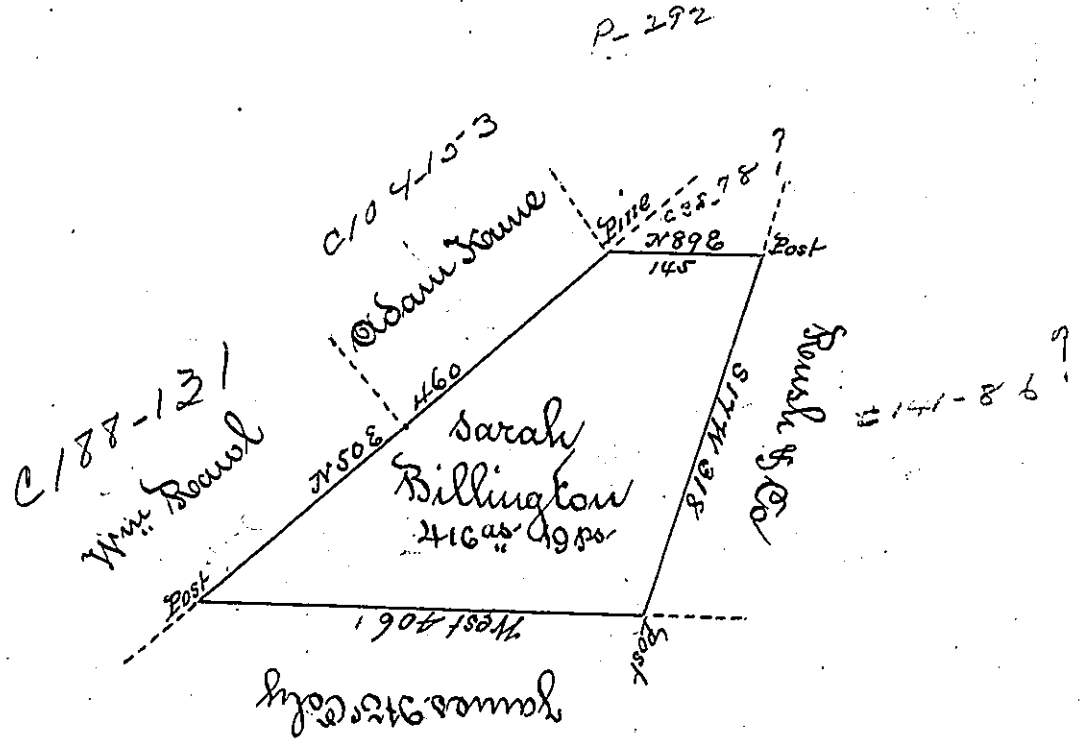 P-292
C104-10-3
Adam Kame
Pine
C35-78
?
N89E
145
Post
C188-121
Wm
N50E
460
Sarah
Billington
416 as 19 ps
S17W 318
Rush & Co
= 141-86 ?
Post
West 406
Post
James